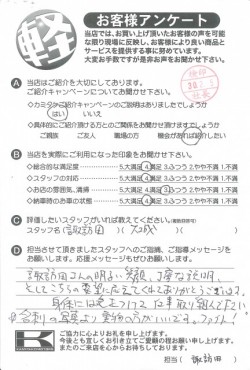 軽
お客様アンケート
当店では、お買い上げ頂いたお客様の声を可能な限り現場に反映し、お客様により良い商品とサービスを提供する事に努めています。
大変お手数ですが是非お声をお聞かせ下さい。
A 当店はご紹介を大切にしております。
ご紹介キャンペーンについてお聞かせ下さい
◇カミタケご紹介キャンペーンのご説明はありましたでしょうか
はい いいえ
◇具体的にご紹介頂ける方とのご関係をお聞かせ頂けますでしょうか
ご親族 ご友人 職場の方 機会があれば紹介したい
B 当店を実際にご利用になった印象をお聞かせ下さい。
◇総合的な満足度 5.大満足 4.満足 3.ふつう 2.やや不満 1.不満
◇スタッフの対応 5.大満足 4.満足 3.ふつう 2.やや不満 1.不満
◇お店の雰囲気、清掃 5.大満足 4.満足 3.ふつう 2.やや不満 1.不満
◇納車時のお車の状態 5.大満足 4.満足 3.ふつう 2.やや不満 1.不満
C 評価したいスタッフがいれば教えてください。
スタッフ名( 諏訪園 )( 大成 )
D 担当させて頂きましたスタッフへのご指摘、ご指導メッセージをお願いします。応援メッセージもぜひお願いします。
諏訪園さんの明るい笑顔、丁寧な説明、
そしてこちらの要望に応えてくれてありがとうございます。
身体には気をつけて仕事取り組んで下さい
ご協力に心よりお礼を申し上げます。
今後とも宜しくお引き立てご愛顧の程お願い申し上げます。
またのご来店を心からお待ちしております。
担当( 諏訪園 )